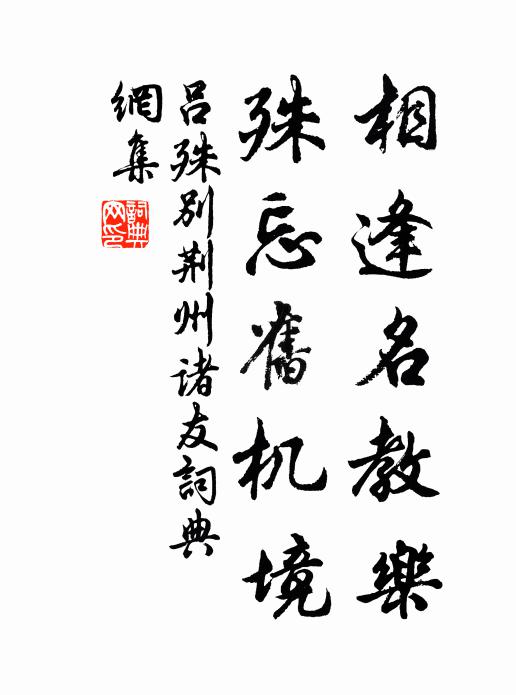 相逢名教樂
殊忘舊机境
吕殊別荆州诸友詞典
網集
詞典
网印